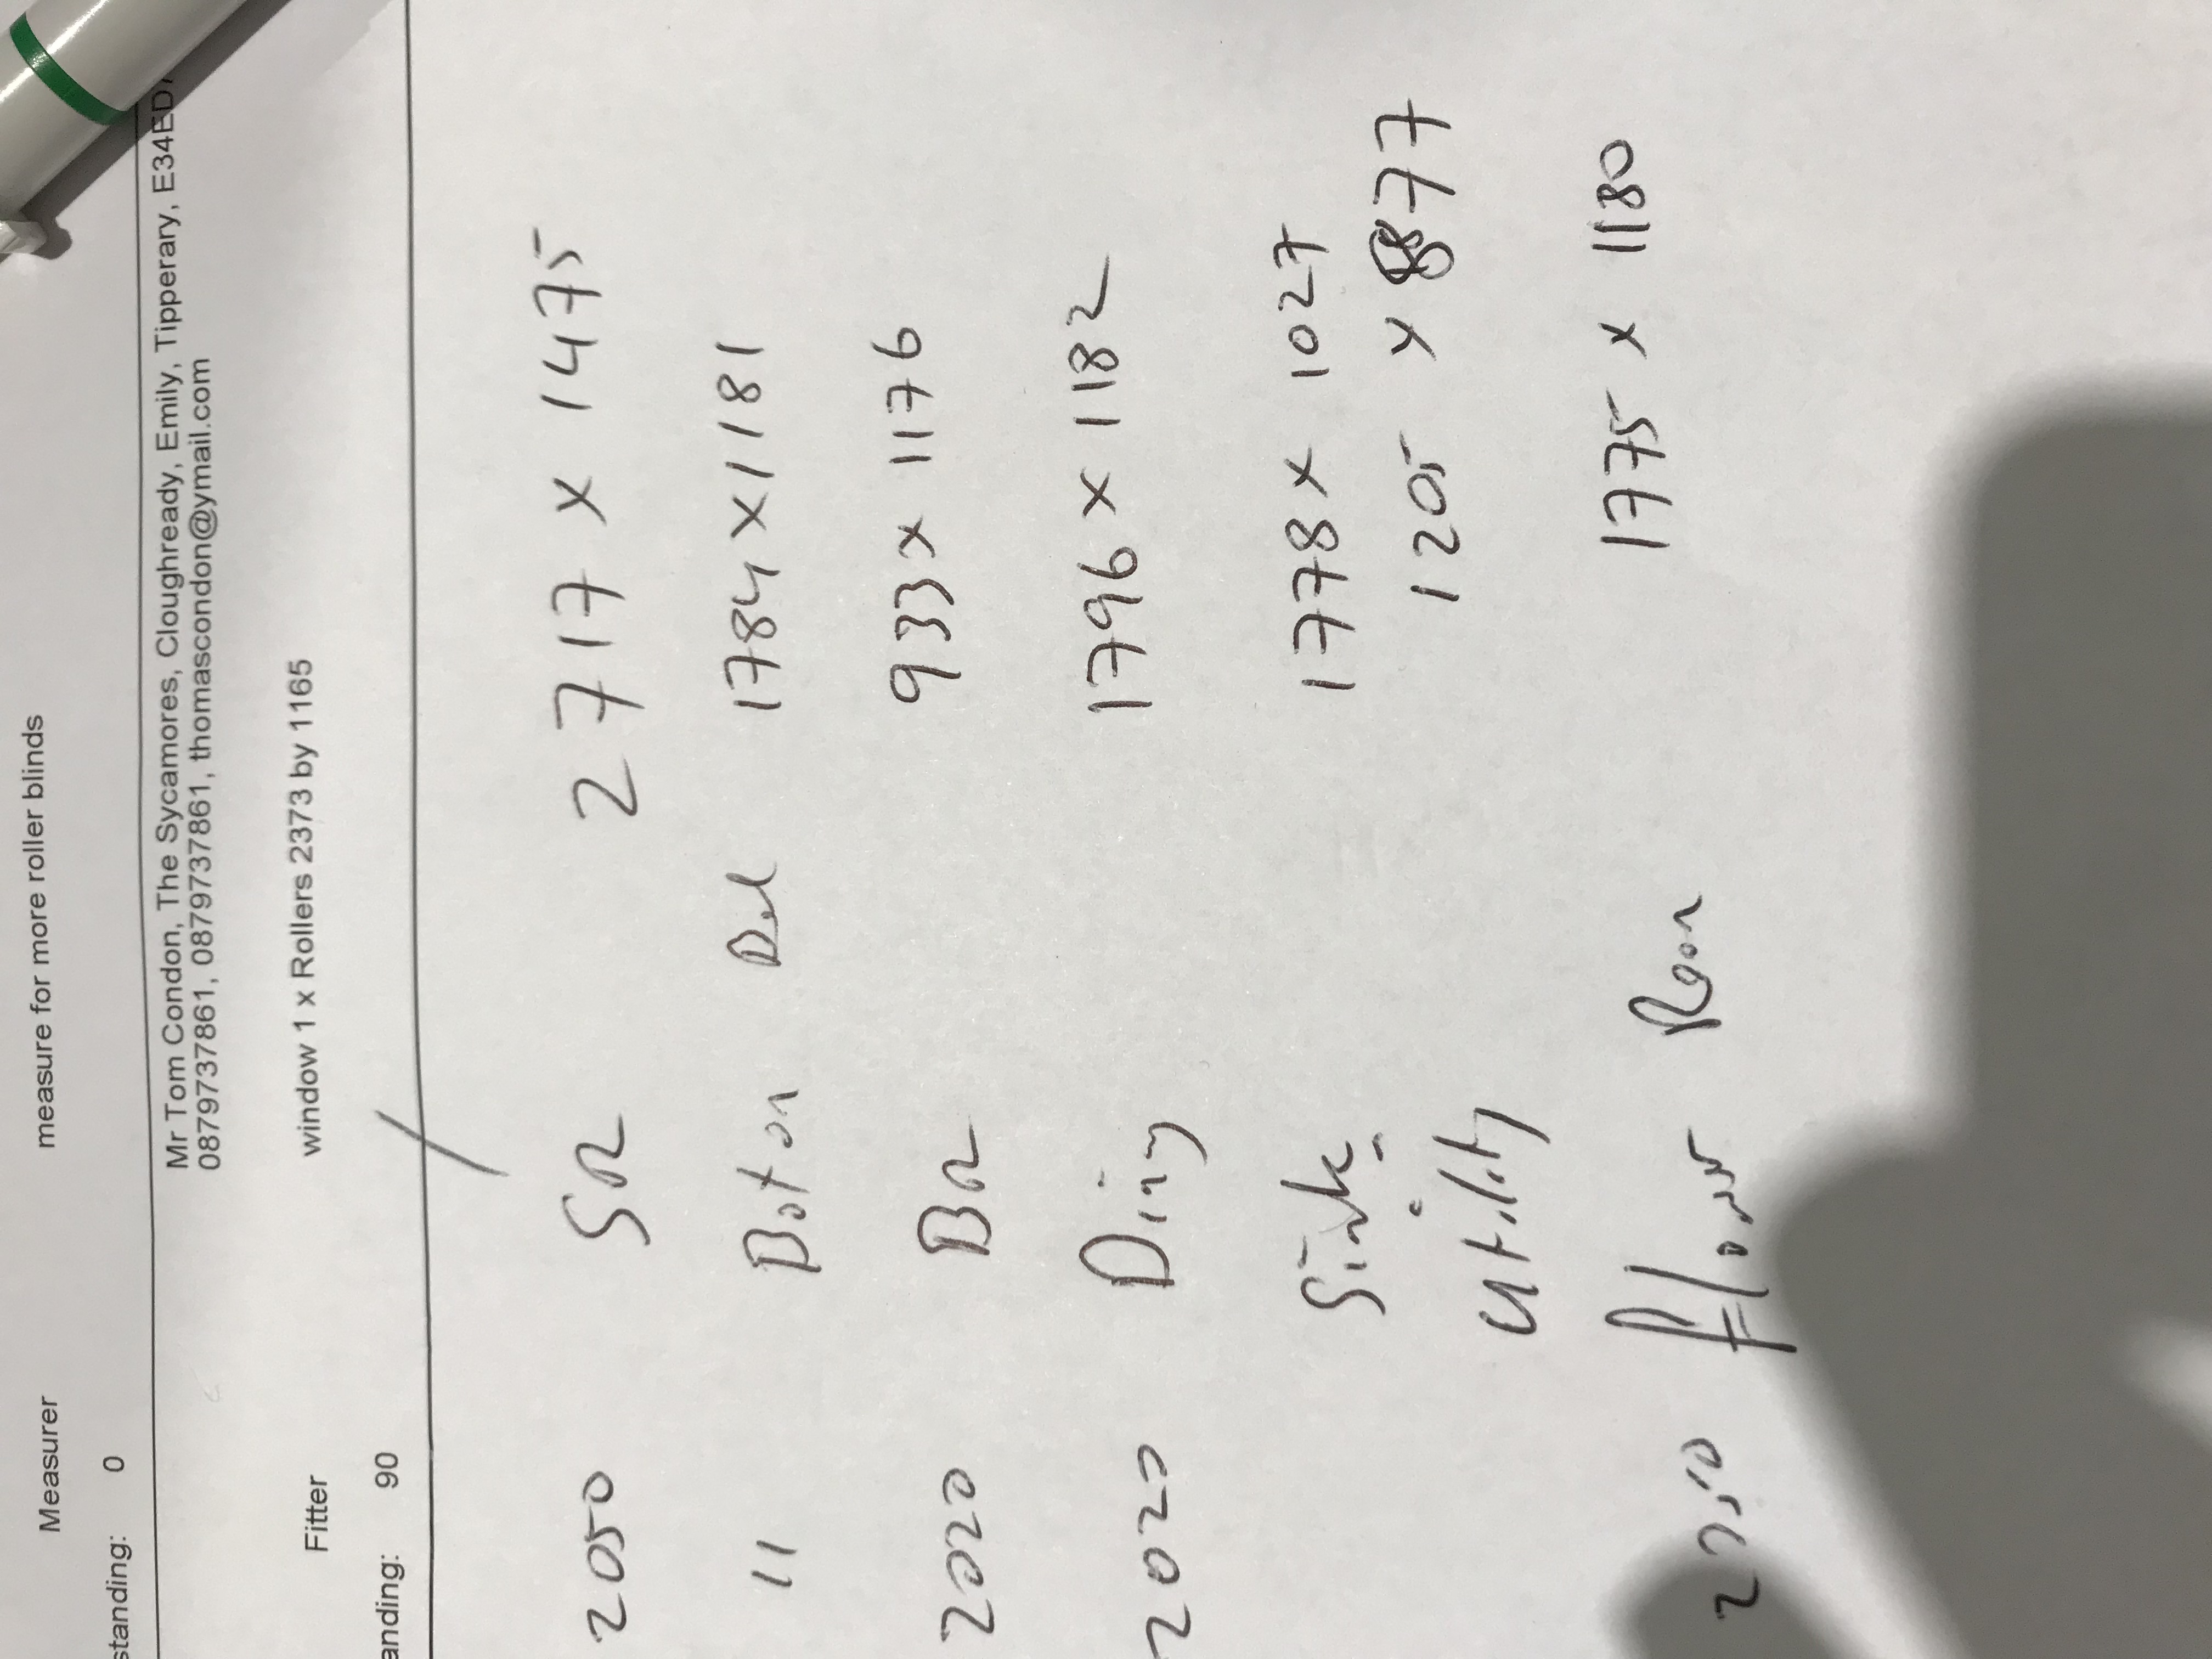 Measurer measure for more roller blinds
standing: 0
Mr Tom Condon, The Sycamores, Cloughready, Emily, Tipperary, E34ED
0879737861, 0879737861, thomascondon@ymail.com
Fitter window 1 x Rollers 2373 by 1165
anding: 90
2050 SR 2717 x 1475
11 Boton Bed 1784 x 1181
2020 BR 933 x 1176
2020 Diny 1796 x 1182
Sink 1778 x 1027
Utility 1205 x 877
Room 1775 x 1180